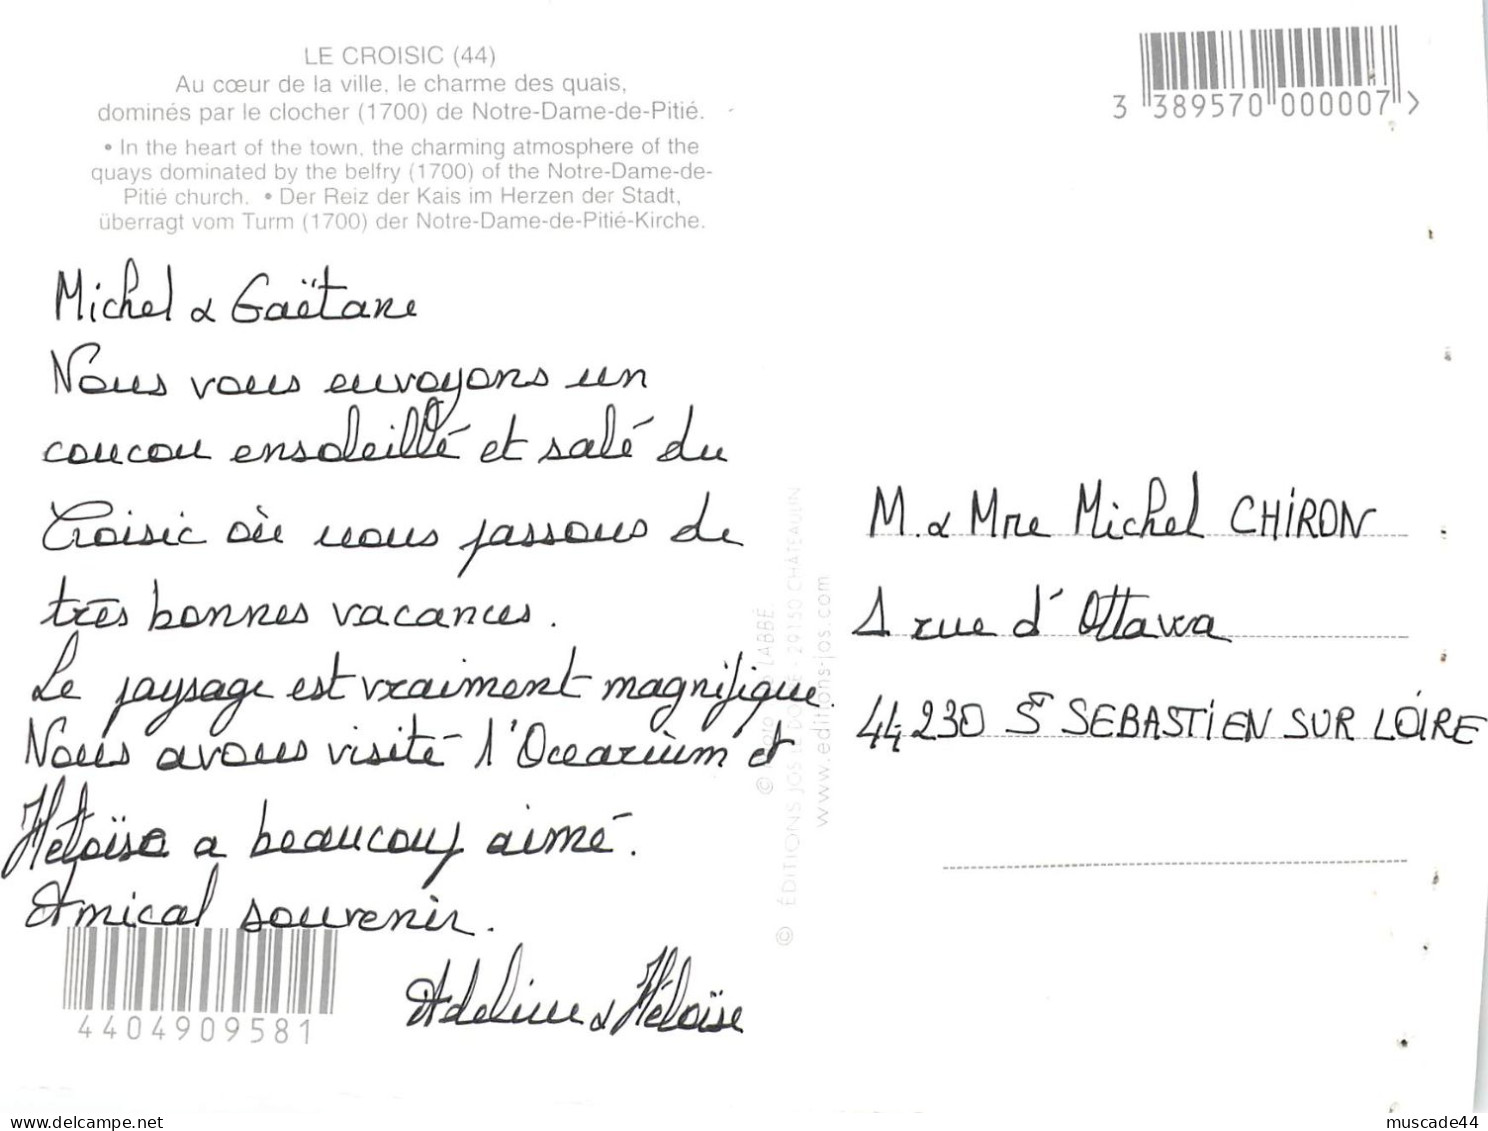 LE CROISIC (44)
Au cœur de la ville, le charme des quais,
dominés par le clocher (1700) de Notre-Dame-de-Pitié.
• In the heart of the town, the charming atmosphere of the
quays dominated by the belfry (1700) of the Notre-Dame-de-
Pitié church. • Der Reiz der Kais im Herzen der Stadt,
überragt vom Turm (1700) der Notre-Dame-de-Pitié-Kirche.
3 389570 000007 >
Michel & Gaëtane
Nous vous envoyons un
coucou ensoleillé et salé du
Croisic où nous passons de
très bonnes vacances.
Le paysage est vraiment magnifique.
Nous avons visité l'Océarium et
Héloïse a beaucoup aimé.
Amical souvenir.
Adeline & Héloïse
4404909581
© LABBÉ
© ÉDITIONS JOS LE DOARÉ - 29150 CHATEAULIN
www.editions-jos.com
M. & Mme Michel CHIRON
1 rue d'Ottawa
44230 St SEBASTIEN SUR LOIRE
www.delcampe.net
muscade44